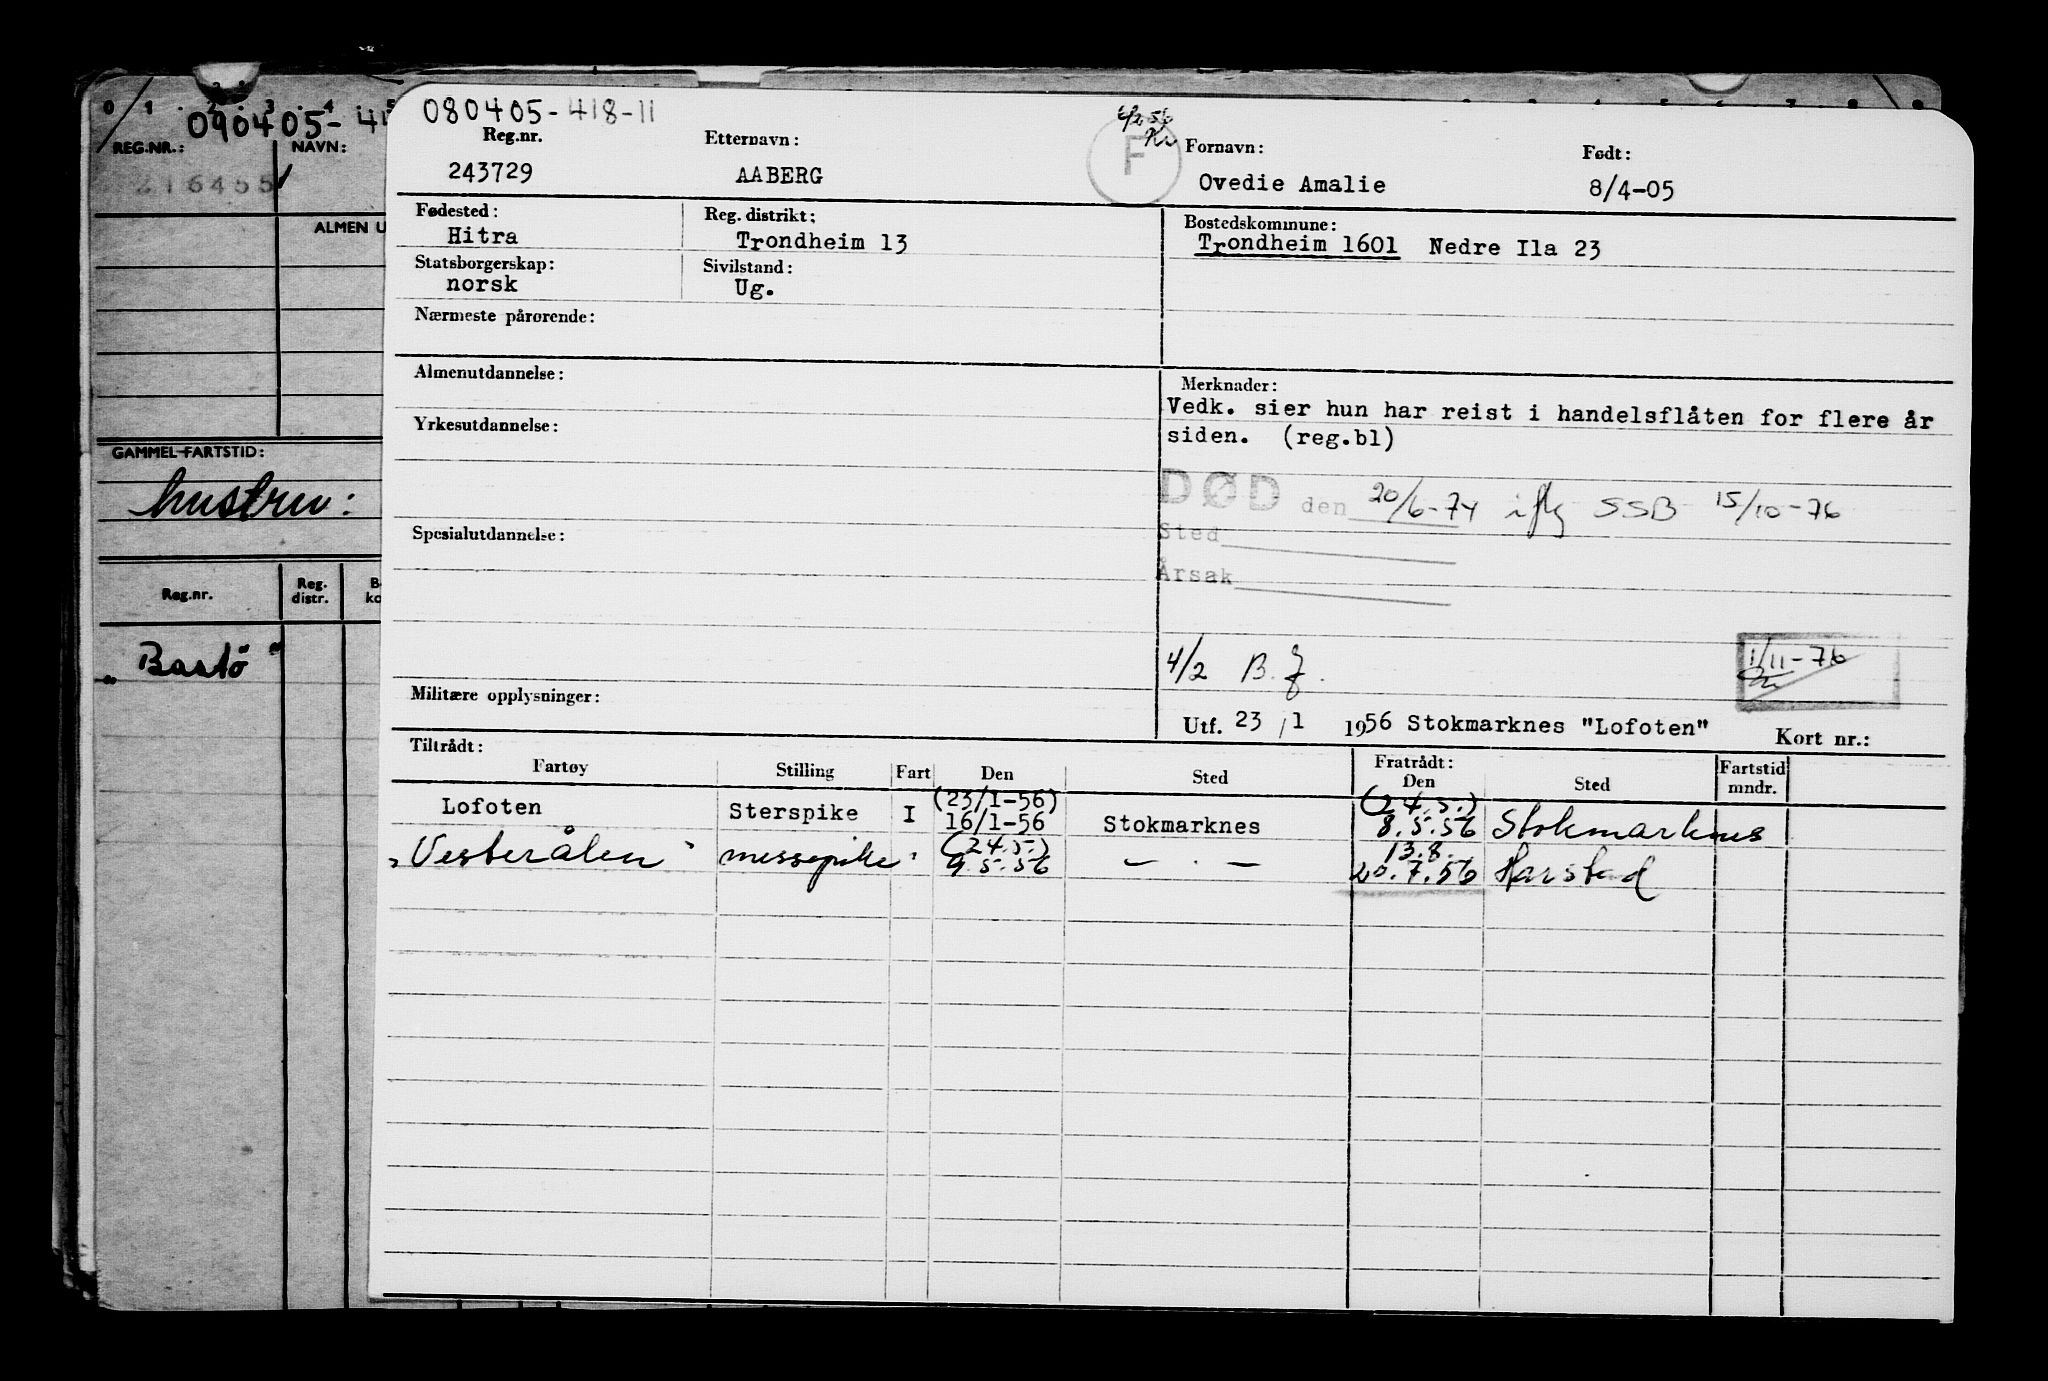 0 1 2 3 4 5
090405-41
REG.NR.: NAVN:
216455
ALMEN U
GAMMEL-FARTSTID:
hustru:
Reg.nr. Reg. distr. B ko
"Bastö"
080405-418-11
Reg.nr. Etternavn: Fornavn: Født:
243729 AABERG F Ovedie Amalie 8/4-05
Fødested: Reg. distrikt: Bostedskommune:
Hitra Trondheim 13 Trondheim 1601 Nedre Ila 23
Statsborgerskap: Sivilstand:
norsk Ug.
Nærmeste pårørende:
Almenutdannelse: Merknader:
Vedk. sier hun har reist i handelsflåten for flere år
siden. (reg.bl)
Yrkesutdannelse:
DØD den 20/6-74 iflg SSB 15/10-76
Sted
Spesialutdannelse:
Årsak
4/2 B.
1/11-76
Militære opplysninger:
Utf. 23/1 1956 Stokmarknes "Lofoten" Kort nr.:
Tiltrådt: Fratrådt:
Fartøy Stilling Fart Den Sted Den Sted Fartstid mndr.
(23/1-56) (24.5.)
Lofoten Sterspike I 16/1-56 Stokmarknes 8.5.56 Stokmarknes
(24.5.) 13.8.
"Vesterålen" messepike " 9.5.56 — " — 20.7.56 Harstad